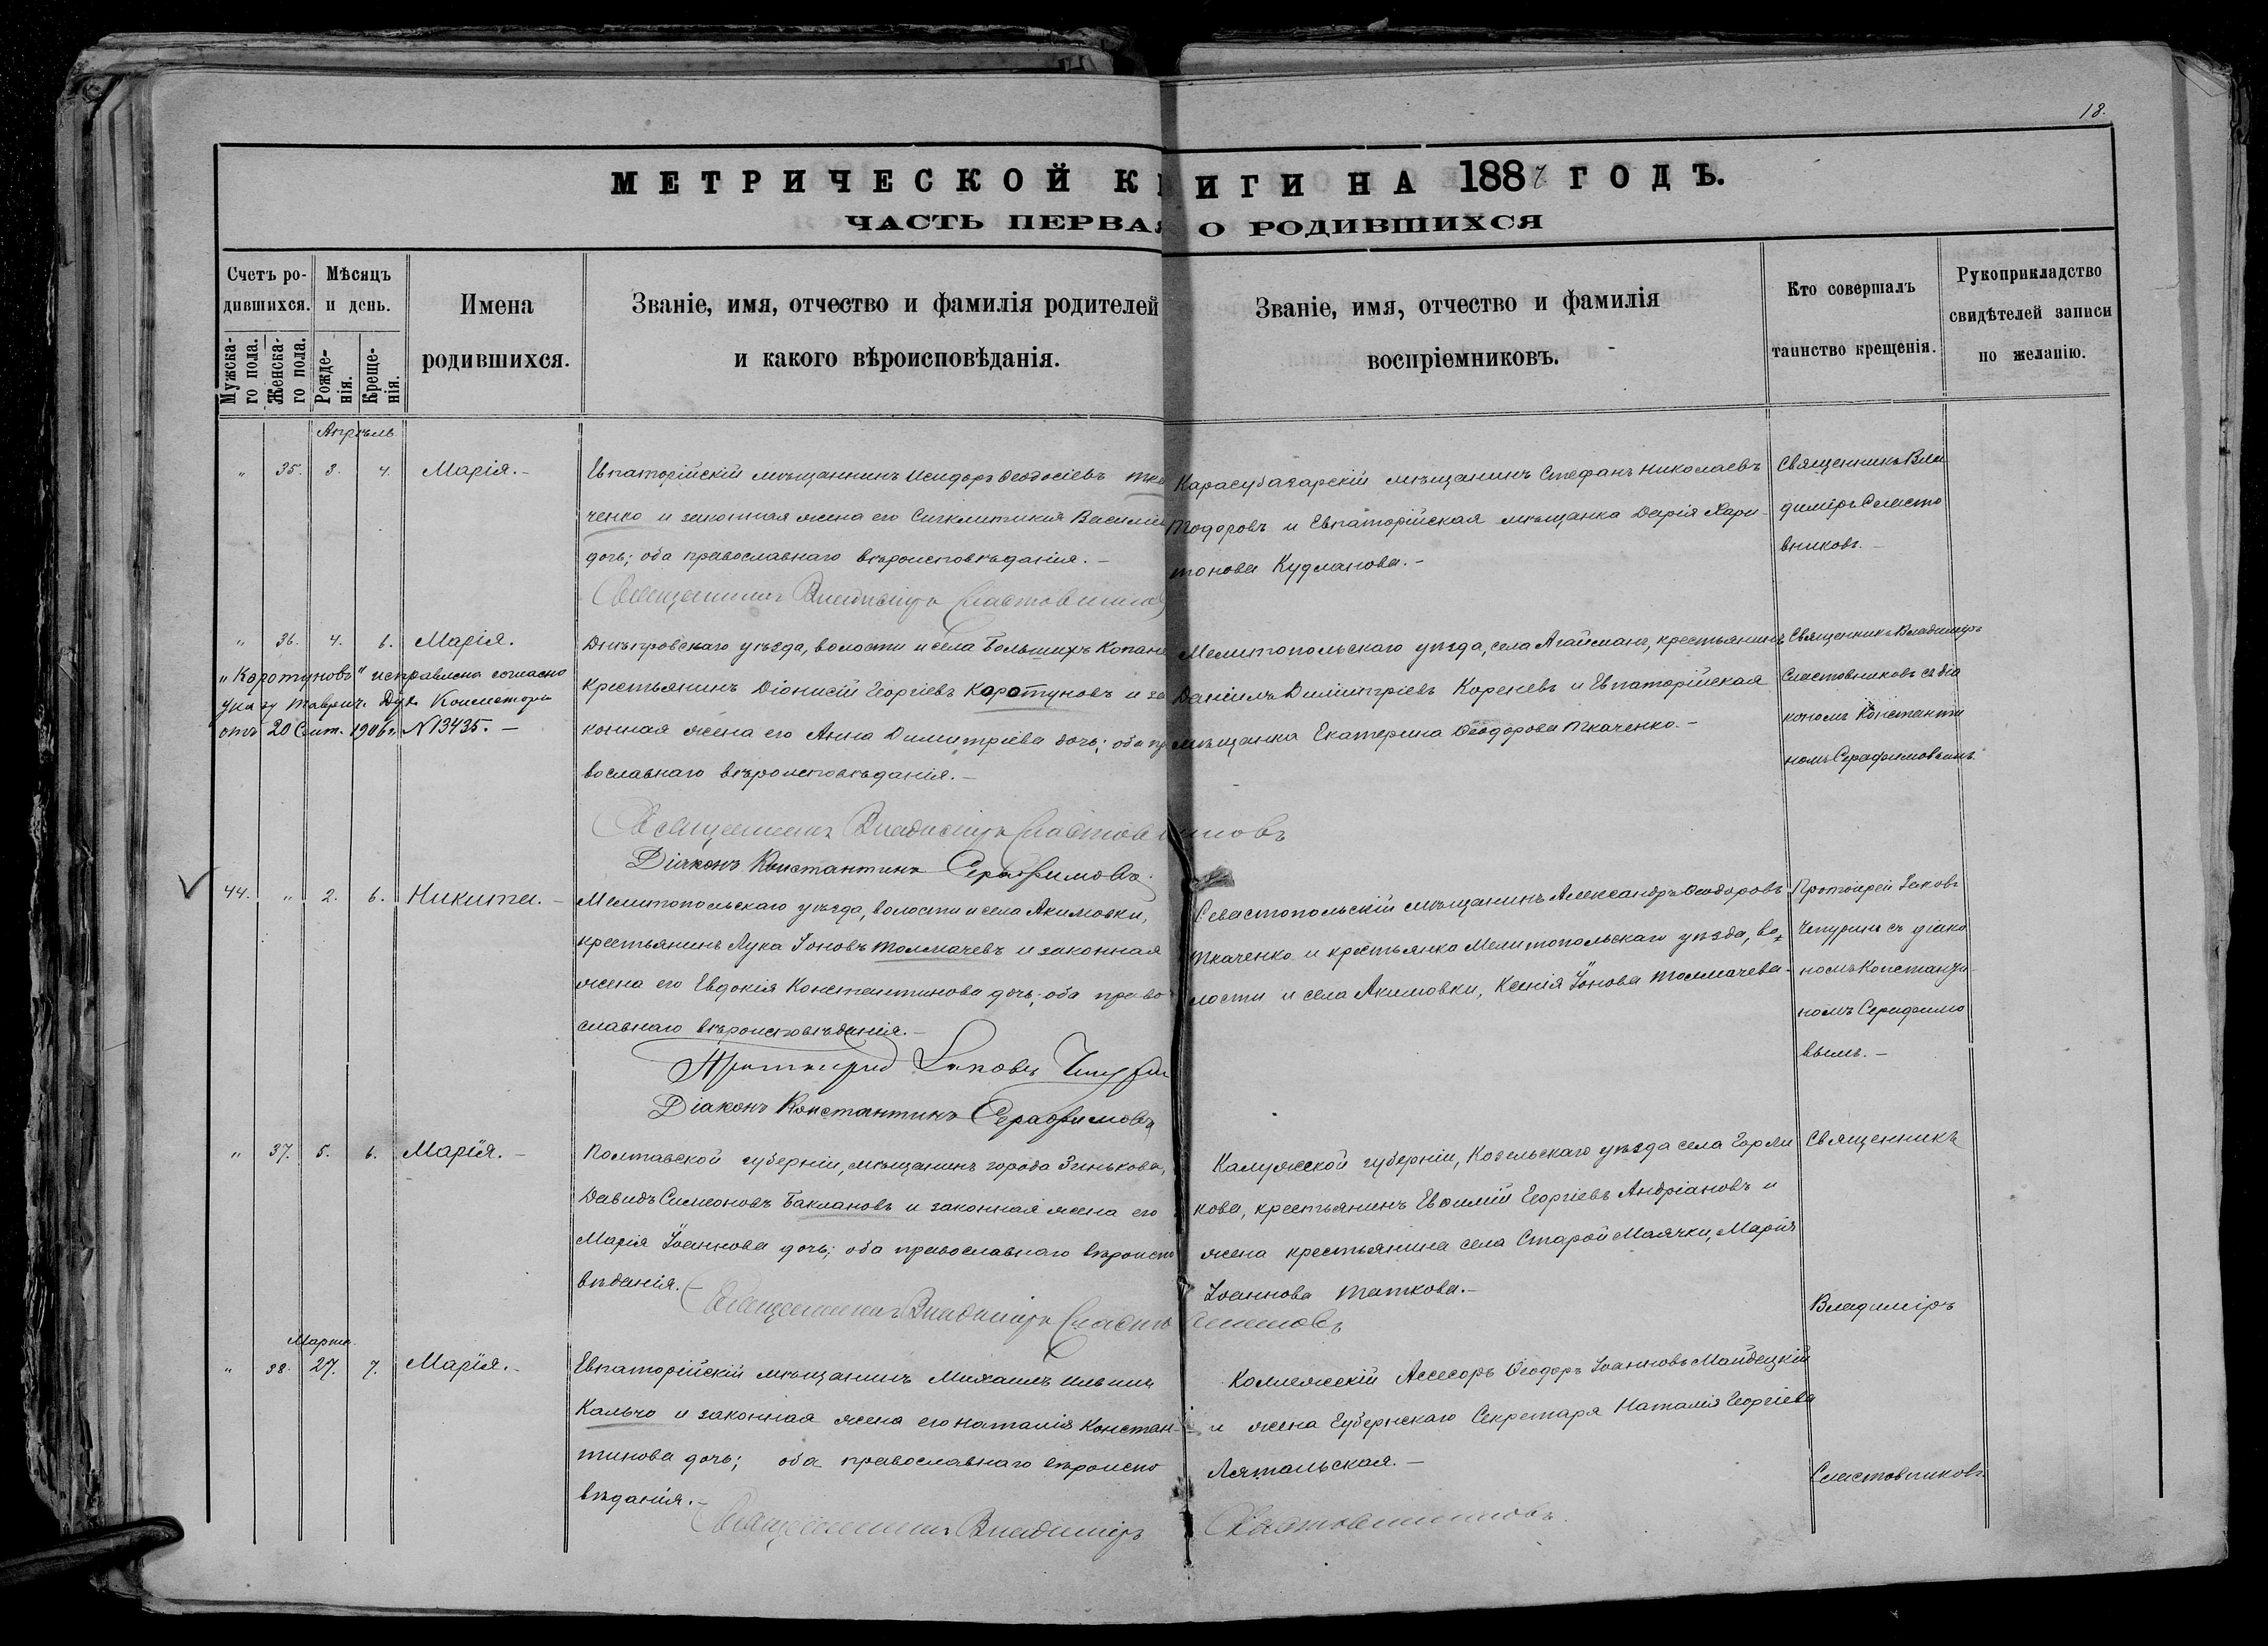 18.
МЕТРИЧЕСКОЙ КНИГИ НА 1887 ГОДЪ.
ЧАСТЬ ПЕРВАЯ О РОДИВШИХСЯ
Счетъ родившихся.
Мужскаго пола.
Женскаго пола.
Мѣсяцъ и день.
Рожденія.
Крещенія.
Имена родившихся.
Званіе, имя, отчество и фамилія родителей
и какого вѣроисповѣданія.
Званіе, имя, отчество и фамилія
воспріемниковъ.
Кто совершалъ
таинство крещенія.
Рукоприкладство
свидѣтелей записи
по желанію.
Апрѣль
" 35. 3. 4. Марія.-
Евпаторійскій мѣщанинъ Исидоръ Ѳеодосіевъ Тка
ченко и законная жена его Синклитикія Василіе
дочь; оба православнаго вѣроисповѣданія.-
Священникъ Владиміръ Сластовников
Карасубазарскій мѣщанинъ Стефанъ Николаевъ
Тодоровъ и Евпаторійская мѣщанка Дарія Хари-
тонова Кудманова.-
Священникъ Вла
диміръ Сласто
вниковъ.-
" 36. 4. 6. Марія.
"Коротуновъ" исправлено согласно
указу Таврич. Дух. Консисторіи
отъ 20 Сент. 1906 г. №13435.-
Днѣпровскаго уѣзда, волости и села Большихъ Копане
крестьянинъ Діонисій Георгіевъ Коротуновъ и за
конная жена его Анна Димитріева дочь; оба пра
вославнаго вѣроисповѣданія.-
Священникъ Владиміръ Сластовниковъ
Діаконъ Константинъ Серафимовъ.
Мелитопольскаго уѣзда, села Агайманъ, крестьянинъ
Даніилъ Димитріевъ Кореневъ и Евпаторійская
мѣщанка Екатерина Ѳеодорова Ткаченко.-
Священникъ Владиміръ
Сластовниковъ съ діа
кономъ Константи
номъ Серафимовымъ
44. " 2. 6. Никита.-
Мелитопольскаго уѣзда, волости и села Акимовки,
крестьянинъ Лука Іоновъ Толмачевъ и законная
жена его Евдокія Константинова дочь; оба право
славнаго вѣроисповѣданія.-
Протоіерей Іаковъ Чепурин
Діаконъ Константинъ Серафимовъ
Севастопольскій мѣщанинъ Александръ Ѳеодоровъ
Ткаченко и крестьянка Мелитопольскаго уѣзда, во-
лости и села Акимовки, Ксенія Іонова Толмачева.
Протоіерей Іаковъ
Чепуринъ съ діако
номъ Константи-
номъ Серафимо
вымъ.-
" 37. 5. 6. Марія.-
Полтавской губерніи, мѣщанинъ города Зинькова,
Давидъ Симеоновъ Баклановъ и законная жена его
Марія Іоаннова дочь; оба православнаго вѣроиспо
вѣданія.-
Священникъ Владиміръ Сластовниковъ
Калужской губерніи, Козельскаго уѣзда села Горми
кова, крестьянинъ Евѳимій Георгіевъ Андріановъ и
жена крестьянина села Старой Маячки, Марія
Іоаннова Таткова.-
Священникъ
Владиміръ
Марта
" 38. 27. 7. Марія.-
Евпаторійскій мѣщанинъ Михаилъ Ильинъ
Кальчо и законная жена его Наталія Констан-
тинова дочь; оба православнаго вѣроиспо
вѣданія.-
Священникъ Владиміръ Сластовниковъ.
Коллежскій Асесоръ Ѳеодоръ Іоанновъ Майдецкій
и жена Губернскаго Секретаря Наталія Георгіева
Лятальская.-
Сластовниковъ.